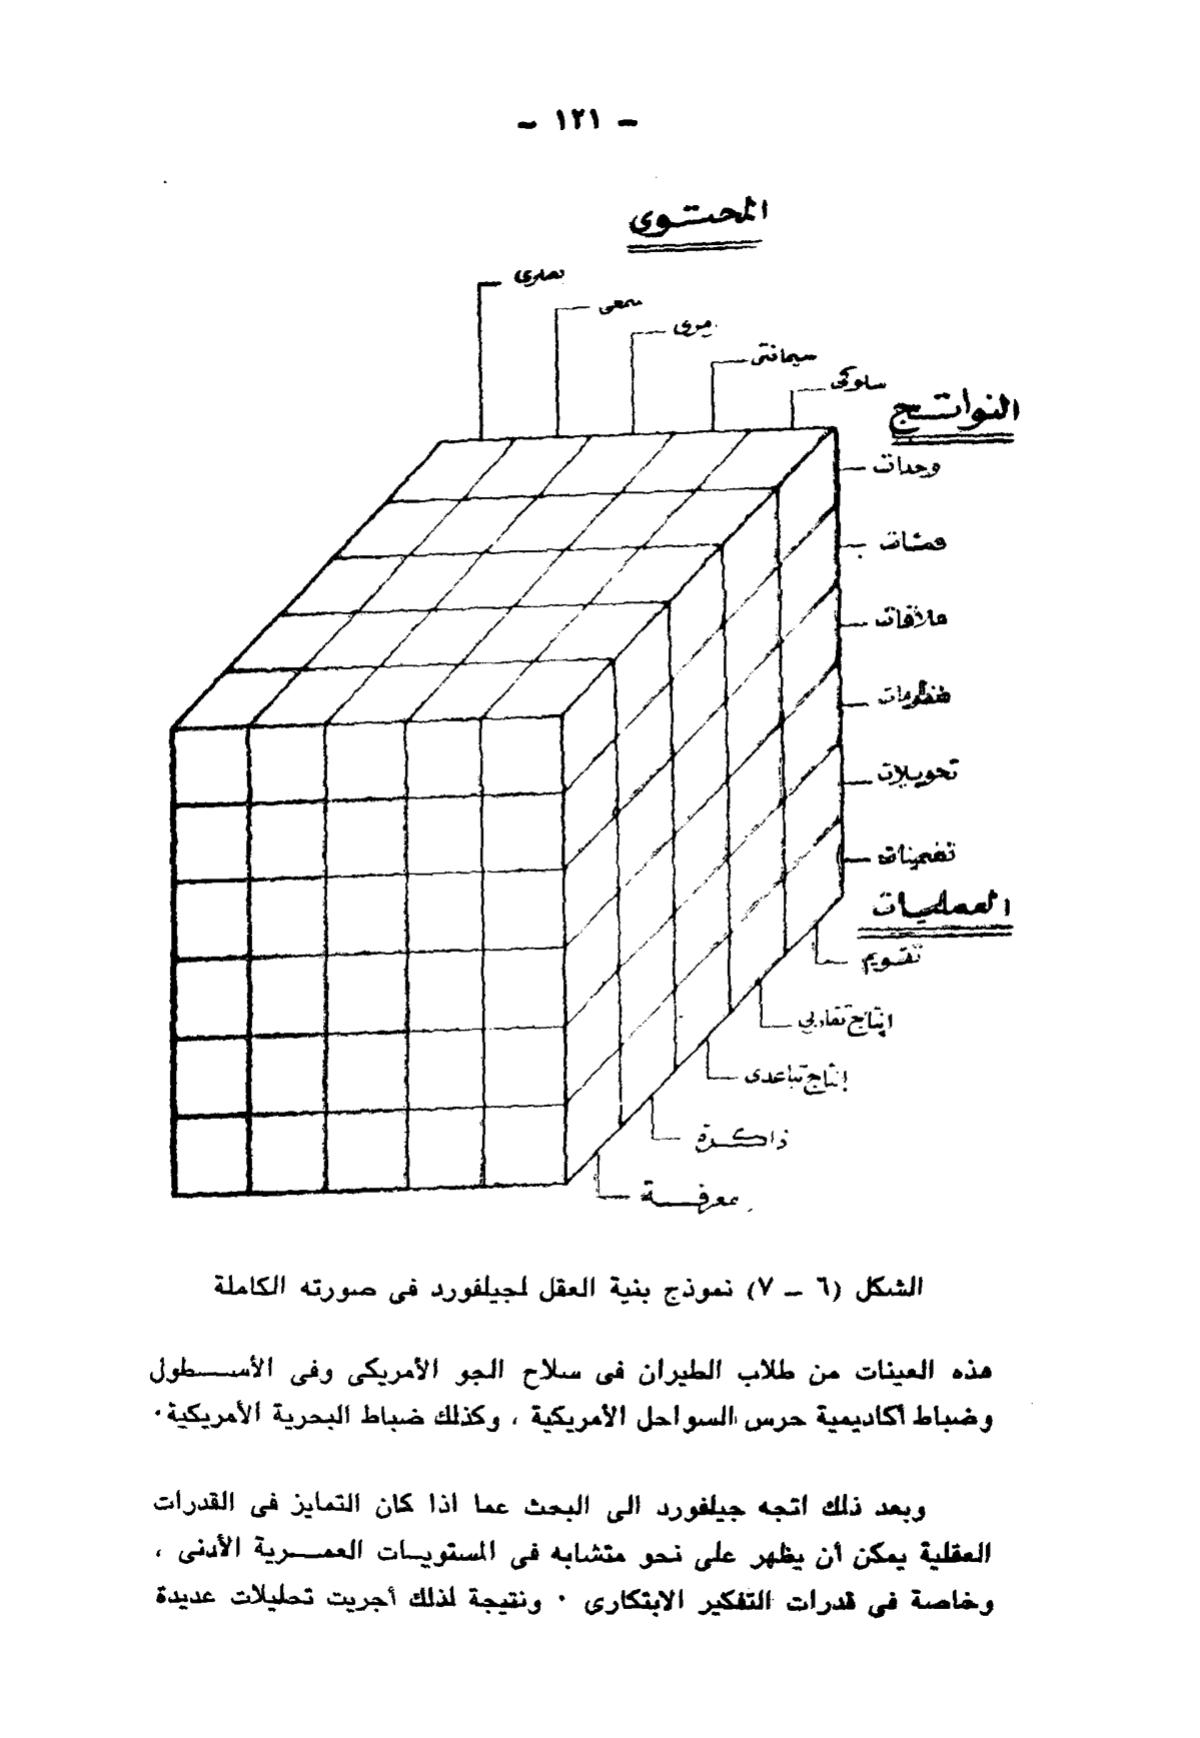 - ١٢١ -
المحتوى
بصرى
سمعى
رمزى
سيمانتى
سلوكى
النواتج
وحدات
فئات
علاقات
منظومات
تحويلات
تضمينات
العمليات
تقويم
إنتاج تقاربي
إنتاج تباعدى
ذاكرة
معرفة
الشكل (٦ – ٧) نموذج بنية العقل لجيلفورد فى صورته الكاملة
هذه العينات من طلاب الطيران فى سلاح الجو الأمريكى وفى الأسطول
وضباط أكاديمية حرس السواحل الأمريكية ، وكذلك ضباط البحرية الأمريكية٠
وبعد ذلك اتجه جيلفورد الى البحث عما اذا كان التمايز فى القدرات
العقلية يمكن أن يظهر على نحو متشابه فى المستويات العمرية الأدنى ،
وخاصة فى قدرات التفكير الابتكارى ٠ ونتيجة لذلك أجريت تحليلات عديدة